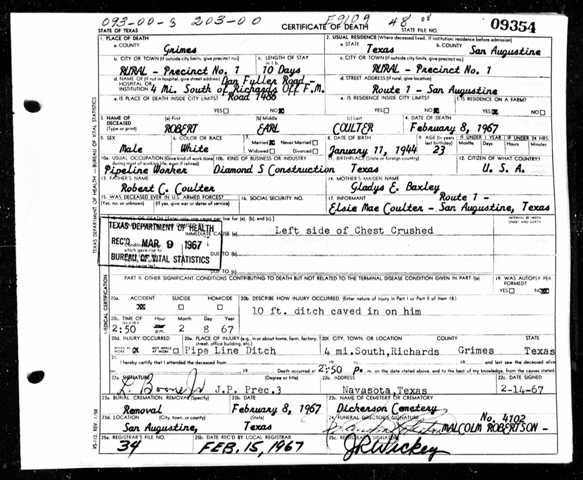 093-00-3 203-00 E9109 48 08
STATE OF TEXAS CERTIFICATE OF DEATH STATE FILE NO. 09354
1. PLACE OF DEATH 2. USUAL RESIDENCE (Where deceased lived. If institution: residence before admission)
a. COUNTY Grimes a. STATE Texas b. COUNTY San Augustine
b. CITY OR TOWN (If outside city limits, give precinct no.) c. LENGTH OF STAY c. CITY OR TOWN (If outside city limits, give precinct no.)
RURAL - Precinct No. 1 10 Days RURAL - Precinct No. 1
d. NAME OF (If not in hospital, give street address) HOSPITAL OR INSTITUTION Dan Fuller Road - d. STREET ADDRESS (If rural, give location)
4 Mi. South of Richards Off F.M. Route 1 - San Augustine
e. IS PLACE OF DEATH INSIDE CITY LIMITS? Road 1486 e. IS RESIDENCE INSIDE CITY LIMITS? f. IS RESIDENCE ON A FARM?
YES NO YES NO YES NO
3. NAME OF DECEASED (Type or print) (a) First (b) Middle (c) Last 4. DATE OF DEATH
ROBERT EARL COULTER February 8, 1967
5. SEX 6. COLOR OR RACE 7. Married Never Married Widowed Divorced 8. DATE OF BIRTH 9. AGE IF UNDER 1 YEAR IF UNDER 24 HRS.
Male White January 11, 1944 23 Months Days Hours Minutes
10a. USUAL OCCUPATION (Give kind of work done 10b. KIND OF BUSINESS OR INDUSTRY 11. BIRTHPLACE (State or foreign country) 12. CITIZEN OF WHAT COUNTRY?
Pipeline Worker Diamond S Construction Texas U. S. A.
13. FATHER'S NAME 14. MOTHER'S MAIDEN NAME
Robert C. Coulter Gladys E. Baxley
15. WAS DECEASED EVER IN U.S. ARMED FORCES? 16. SOCIAL SECURITY NO. 17. INFORMANT Route 1 -
(Yes, no, or unknown) (If yes, give war or dates of service) Elsie Mae Coulter - San Augustine, Texas
TEXAS DEPARTMENT OF HEALTH
REC'D MAR 9 1967
BUREAU OF VITAL STATISTICS
IMMEDIATE CAUSE Left side of Chest Crushed
DUE TO
DUE TO
PART II. OTHER SIGNIFICANT CONDITIONS CONTRIBUTING TO DEATH BUT NOT RELATED TO THE TERMINAL DISEASE CONDITION GIVEN IN PART I(a) 19. WAS AUTOPSY PERFORMED?
YES NO
20a. ACCIDENT SUICIDE HOMICIDE 20b. DESCRIBE HOW INJURY OCCURRED. (Enter nature of injury in Part I or Part II of item 18.)
10 ft. ditch caved in on him
20c. TIME OF INJURY Hour Month Day Year
2:50 p.m. 2 8 67
20d. INJURY OCCURRED 20e. PLACE OF INJURY (e.g., in or about home, farm, factory, street, office building, etc.) 20f. CITY, TOWN, OR LOCATION COUNTY STATE
Pipe Line Ditch 4 mi.South,Richards Grimes Texas
21. I hereby certify that I attended the deceased from and last saw the deceased alive
Death occurred at 2:50 P. m. on the date stated above, and to the best of my knowledge, from the causes stated.
22a. SIGNATURE (Degree or title) 22b. ADDRESS 22c. DATE SIGNED
L. Boone Jr J.P. Prec.3 Navasota,Texas 2-14-67
23a. BURIAL, CREMATION, REMOVAL (Specify) 23b. DATE 23c. NAME OF CEMETERY OR CREMATORY
Removal February 8, 1967 Dickerson Cemetery
23d. LOCATION (City, town, or county) (State) 24. FUNERAL DIRECTOR'S SIGNATURE No. 4102
San Augustine, Texas MALCOLM ROBERTSON -
25a. REGISTRAR'S FILE NO. 25b. DATE REC'D BY LOCAL REGISTRAR 25c. REGISTRAR'S SIGNATURE
34 FEB. 15, 1967 J.R.Wickey
TEXAS DEPARTMENT OF HEALTH - BUREAU OF VITAL STATISTICS
MEDICAL CERTIFICATION